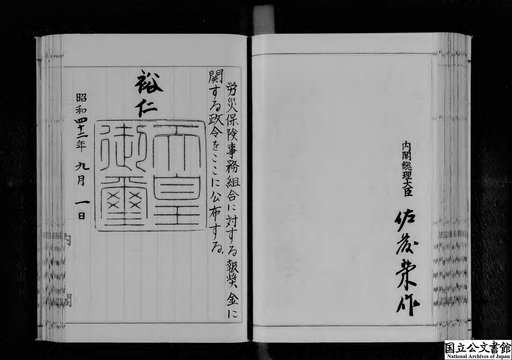 労災保険事務組合に対する報奨金に
関する政令をここに公布する。
裕仁
天皇
御璽
昭和四十二年九月一日
内閣
内閣総理大臣
佐藤榮作
国立公文書館
National Archives of Japan